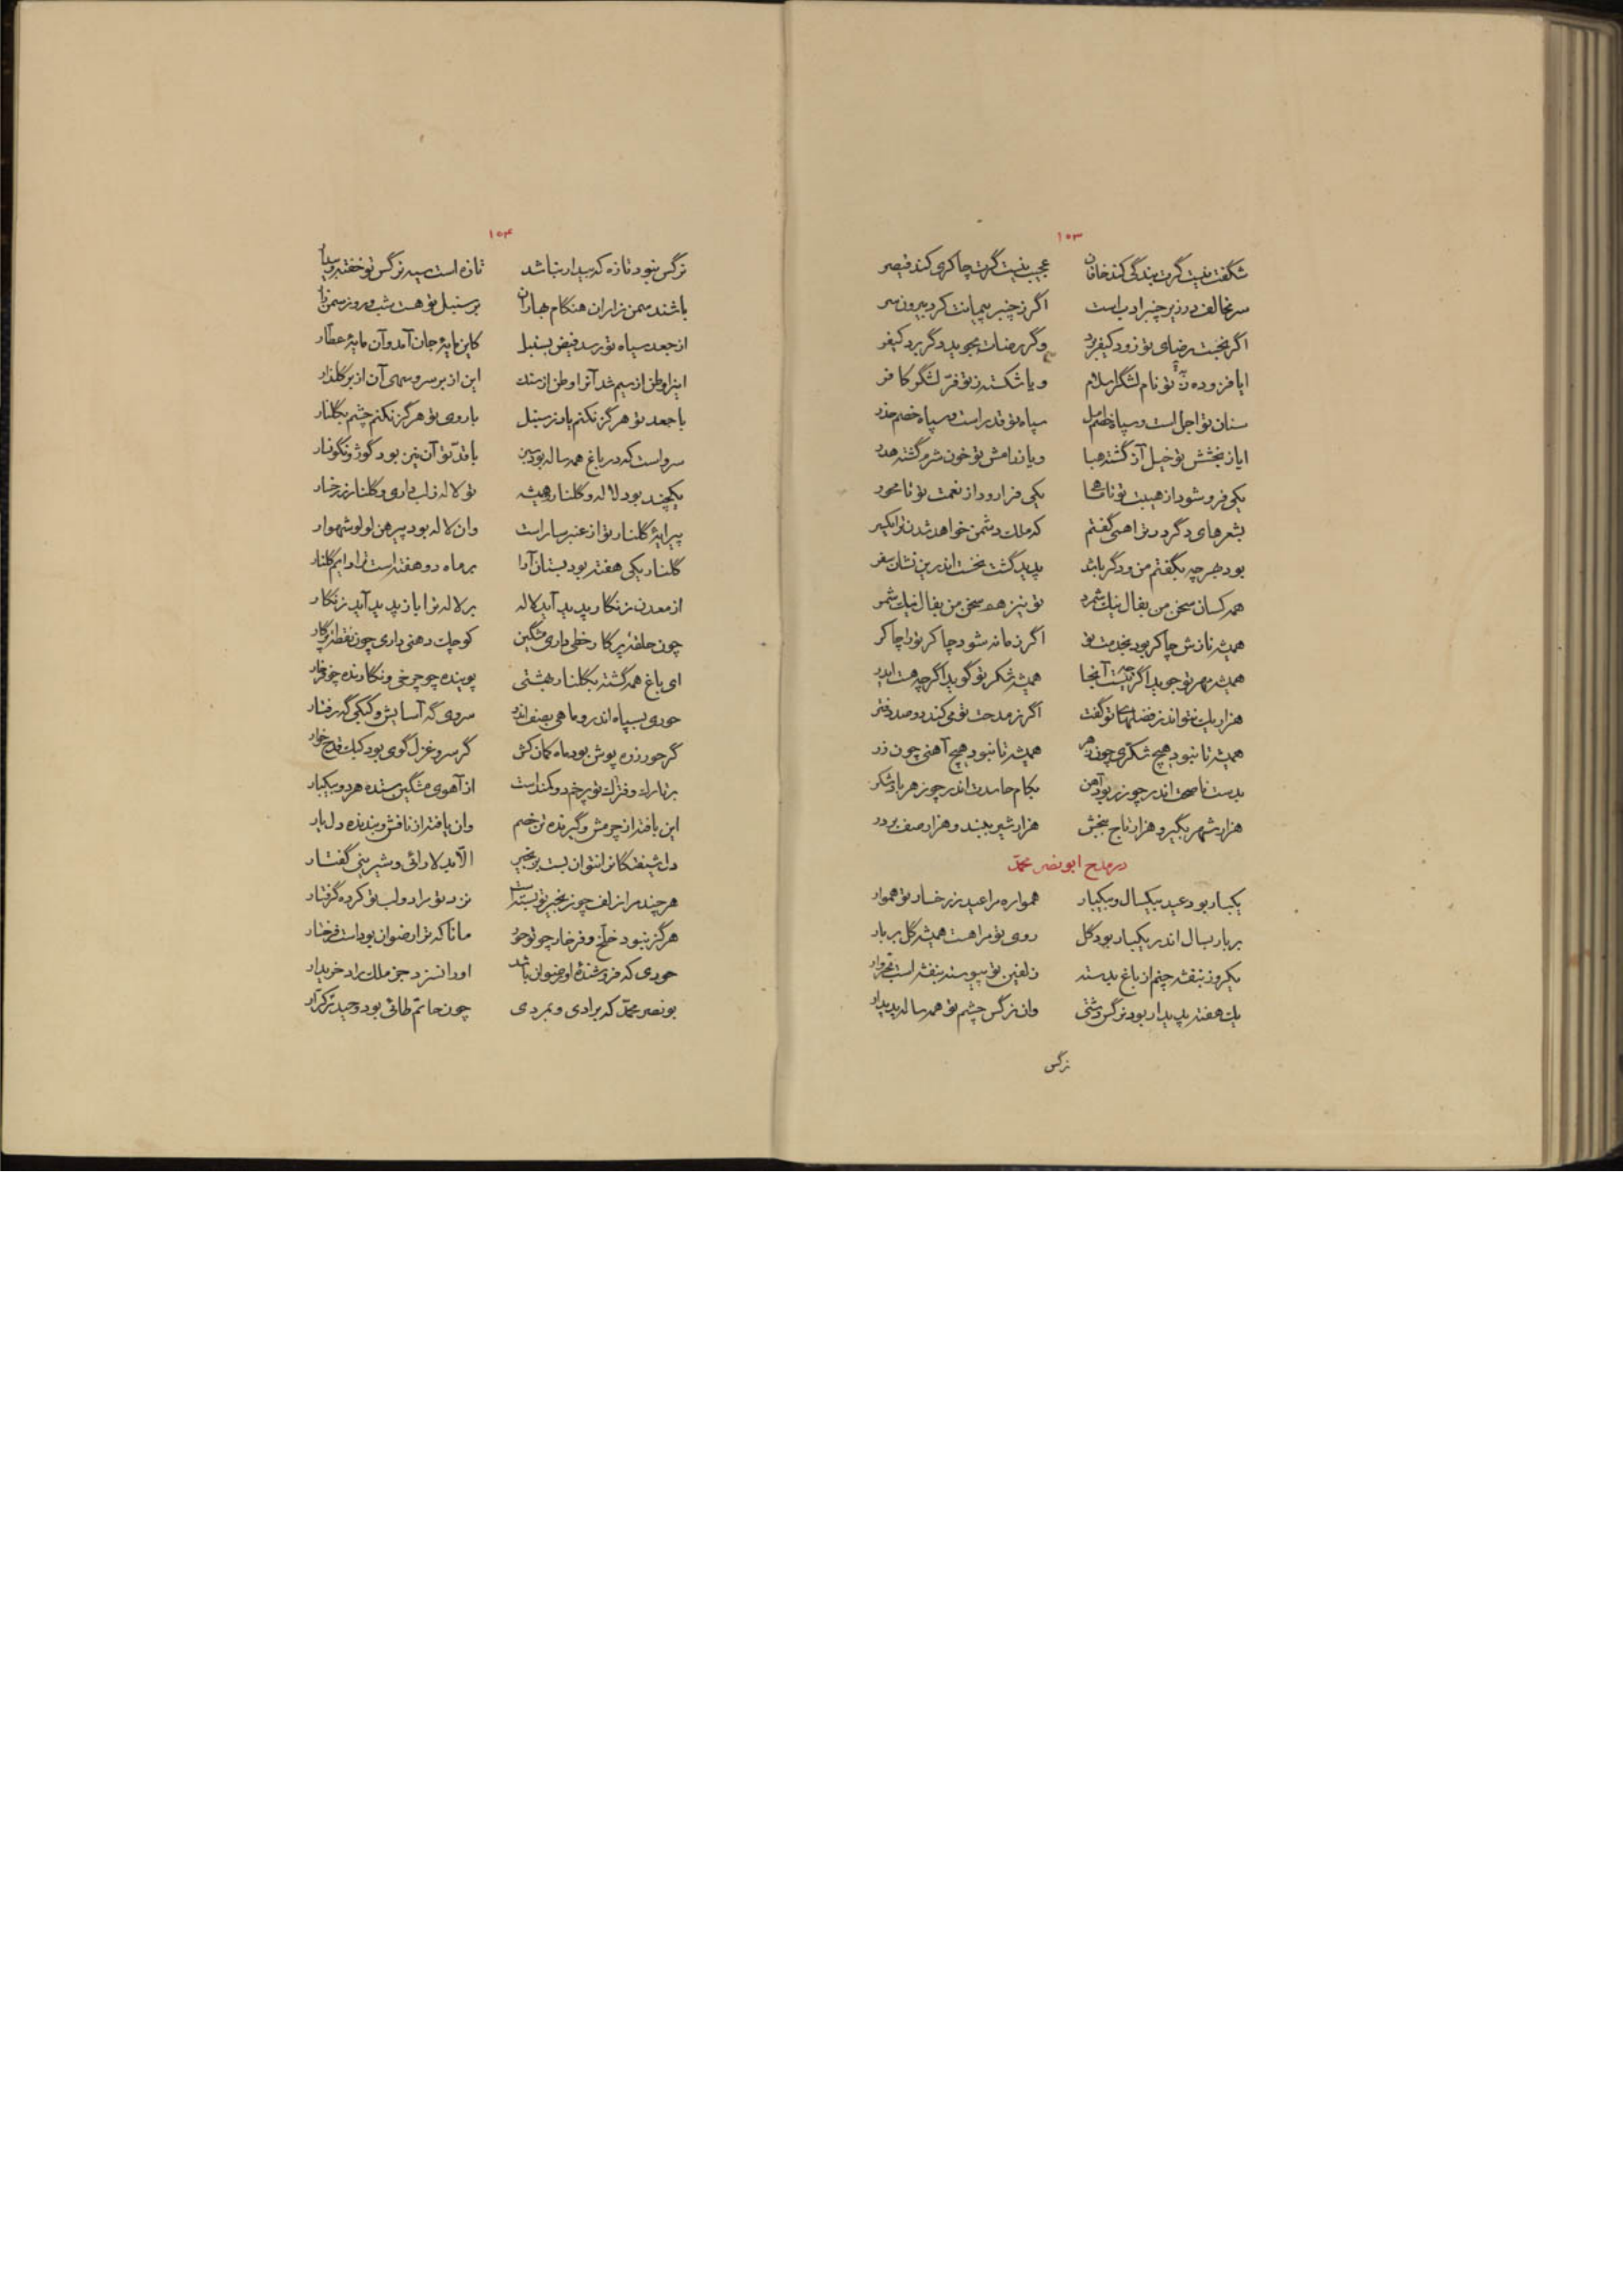 ۱۰۳
شگفت نیست گرت بندگی کند خاقان عجب نیست گرت چاکری کند قیصر
سر مخالف در زیر چنبر ادب است اگر ز چنبر پیمانت کرد بیرون سر
اگر نجست رضای تو زود کیفر برد وگر رضات بجوید دگر برد کیفر
ایا فزوده ز تو نام لشگر اسلام و یا شکسته ز تو فرّ لشگر کافر
سنان تو اجل است و سپاه خصم امل سپاه تو قدر است و سپاه خصم حذر
ایا ز بخشش تو خیل آز گشته هبا و یا ز دامش تو خون شرم گشته هدر
یکی فرو شود از هیبت تو تا یکی فراز رود از نعمت تو تا محور
بشعرهای دگر در ترا همی گفتم که ملک دشمن خواهد شدن ترا یکسر
بود هر چه بگفتم من و دگر باشد پدید گشت نخست اندرین نشان سفر
همه کسان سخن من بفال نیک شمرد تو نیز هم سخن من بفال نیک شمر
همیشه نازش چاکر بود بخدمت تو اگر زمانه شود چاکر تو را چاکر
همیشه مهر تو جوید اگر چه نیست آنجا همیشه شکر تو گوید اگر چه هست ایدر
هزار یک نتواند ز فضلهای تو گفت اگر ز مدحت تو می کند دو صد دفتر
همیشه تا نبود هیچ شکری چون زهر همیشه تا نبود هیچ آهنی چون زر
بدست ناصحت اندر چو زر بود آهن بکام حاسدت اندر چو زهر باد شکر
هزار شهر بگیر و هزار تاج ببخش هزار شیر ببند و هزار صف بر در
در مدح ابو نصر محمّد
یکبار بود عید بیکسال و بیکبار همواره مرا عید ز رخسار تو هموار
بر بار بسال اندر یکبار بود گل روی تو مرا هست همیشه گل بر بار
یکروز بنفشه چنم از باغ بدسته زلفین تو پیوسته بنفشه است بخروار
یک هفته پدیدار بود نرگس دشتی وان نرگس چشم تو همه ساله پدیدار
نرگس
۱۰۴
نرگس نبود تازه که بیدار نباشد تازه است سیه نرگس تو خفته و بیدار
باشند سمن زاران هنگام بهاران بر سنبل تو هست شب و روز سمن زار
از جعد سیاه تو رسد فیض بسنبل کاین مایهٔ جان آمد و آن مایهٔ عطّار
این را وطن از سیم شد آنرا وطن از سنگ این از بر سرو سهی آن از بر گلزار
با جعد تو هرگز نکنم یاد ز سنبل با روی تو هرگز نکنم چشم بگلنار
سرو است که در باغ همه ساله بود سبز با قدّ تو آن نیز بود گوژ و نگونسار
یکچند بود لاله و گلنار همیشه تو لاله ز لب داری و گلنار ز رخسار
پیرایهٔ گلنار تو از عنبر ساراست وان لاله بود پیرهن لولو شهوار
گلنار یکی هفته بود بستان آرا بر ماه دو هفته است ترا دایم گلنار
از معدن زنگار پدید آید لاله بر لاله ترا باز پدید آید زنگار
چون حلقهٔ پرگار خطی داری مشگین کوچک دهنی داری چون نقطهٔ پرگار
ای باغ همه گشته بگلنار بهشتی پوینده چو چرخی و نگارنده چو فرخار
حوری بسپاه اندر و ماهی بصف اندر سروی گه آسایش و کبکی گه رفتار
گر حور زره پوش بود ماه کمان کش گر سرو غزل گوی بود کبک قدح خوار
بر تارک و فتراک تو پر خم دو کمند است از آهوی مشگین ستده هر دو بیکبار
این یافته از چرمش و گیرنده تن خصم وان یافته از نافش و بندنده دل یار
دل شیفتگان را نتوان بست بزنجیر الّا بدلارائی و شیرینی گفتار
هر چند مرا زلف چو زنجیر تو بسته است نزد تو مرا دو لب تو کرده گرفتار
هرگز نبود خلّخ و فرخار چو تو حور مانا که ترا رضوان بوداست فرخار
حوری که فروشندهٔ او رضوان باشد او را نسزد جز ملک راد خریدار
بونصر محمّد که برادی و بمردی چون حاتم طائی بود و حیدر کرّار